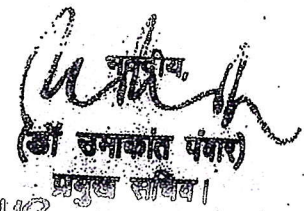 भवदीय,
(डॉ उमाकांत पंवार)
प्रमुख सचिव।